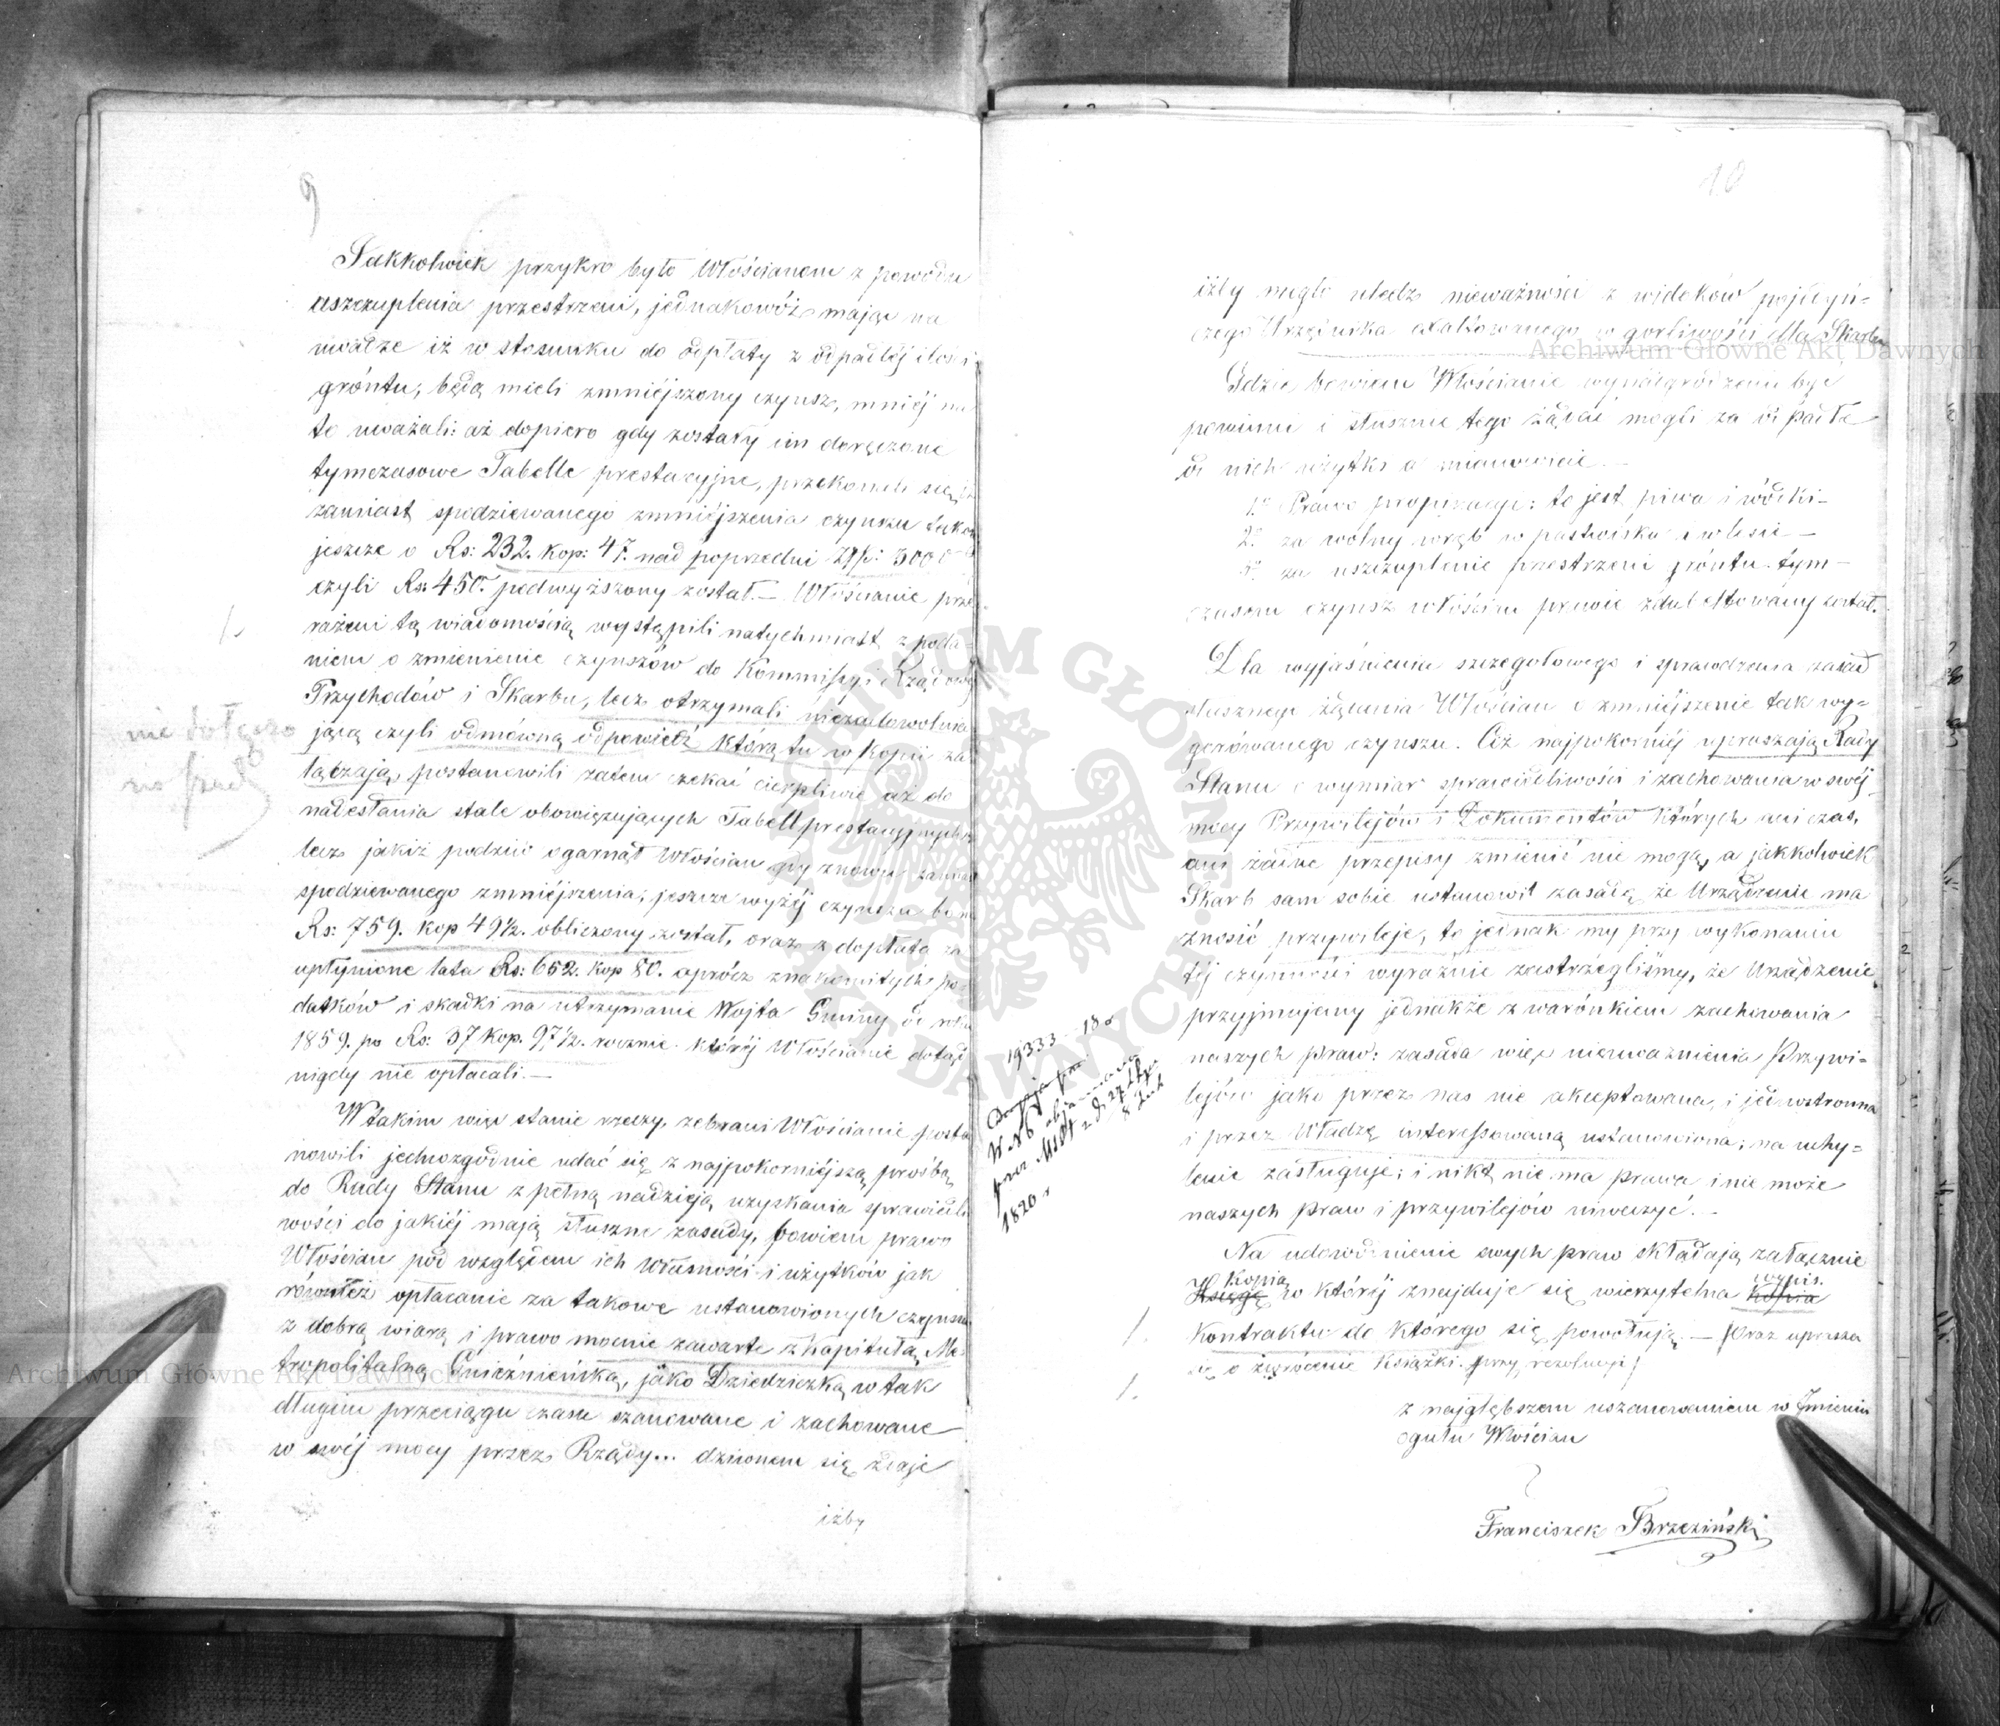 9
Jakkolwiek przykro było Włościanom z powodu
uszczuplenia przestrzeni, jednakowóż mając na
uwadze iż w stosunku do odpłaty z odpadłéj ilości
gróntu, będą mieli zmniéjszony czynsz, mniéj na
to uważali: aż dopiero gdy zostały im doręczone
tymczasowe Tabelle prestacyjne, przekonali się iż
zamiast spodziewanego zmniéjszenia czynszu takow
jeszcze o Rs: 232. kop: 47. nad poprzedni Złp: 3000
czyli Rs: 450. podwyższony został. — Włościanie prze
rażeni tą wiadomością wystąpili natychmiast z poda-
niem o zmienienie czynszów do Kommissyi Rządowéj
Przychodów i Skarbu, lecz otrzymali niezadowolnia
jącą czyli odmówną odpowiedź którą tu w Kopii za
łączają, postanowili zatem czekać cierpliwie aż do
nadesłania stale obowięzujących Tabell prestacyjnych,
lecz jakiż podziw ogarnął Włościan gdy znowu zamiast
spodziewanego zmniéjszenia, jeszcze wyżéj czynsz bo na
Rs: 759. kop 49½. obliczony został, oraz z dopłatą za
upłynione lata Rs: 652. kop 80. oprócz znakomitych po-
datków i składki na utrzymanie Wójta Gminy od roku
1859. po Rs: 37 kop. 97½. rocznie któréj Włościanie dotąd
nigdy nie opłacali. —
W takim więc stanie rzeczy, zebrani Włościanie posta
nowili jednozgodnie udać się z najpokorniéjszą prośbą
do Rady Stanu z pełną nadzieją uzyskania sprawiedli
wości do jakiéj mają słuszne zasady, bowiem prawo
Włościan pod względem ich własności i użytków jak
również opłacanie za takowe ustanowionych czynszów
z dobrą wiarą i prawo mocnie zawarte z Kapitułą Me
tropolitalną Gnieźnieńską, jako Dziedziczką w tak
długim przeciągu czasu szanowane i zachowane
w swéj mocy przez Rządy... dziwnem się zdaje
iżby
1.
nie dołączo
no
10
iżby mogło uledz nieważności z widoków pojedyń-
czego Urzędnika w gorliwości dla Skarbu
Gdzie bowiem Włościanie wynadgrodzeni być
powinni i słusznie tego żądać mogli za odpadłe
od nich użytki a mianowicie. —
1º Prawo propinacyi: to jest piwa i wódki —
2º za wolny wrąb w pastwisku i w lesie —
3º za uszczuplenie przestrzeni gróntu. tym-
czasem czynsz włościan prawie zdubeltowany został.
Dla wyjaśnienia szczegółowego i sprawdzenia zasad
słusznego żądania Włościan o zmniéjszenie tak wy-
górowanego czynszu. Ciż najpokorniéj upraszają Rady
Stanu o wymiar sprawiedliwości i zachowania w swéj
mocy Przywilejów i Dokumentów których ani czas,
ani żadne przepisy zmienić nie mogą, a jakkolwiek
Skarb sam sobie ustanowił zasadę że Urządzenie ma
znosić przywileje, to jednak my przy wykonaniu
téj czynności wyraźnie zastrzegliśmy, że Urządzenie
przyjmujemy jednakże z warónkiem zachowania
naszych praw: zasada więc nieuważnienia Przywi-
lejów jako przez nas nie akceptowana, i jednostronna
i przez Władzę interessowaną ustanowiona; na uchy-
lenie zasługuje; i nikt nie ma prawa i nie może
naszych praw i przywilejów niweczyć. —
Na udowodnienie swych praw składają załącznie
Kopią wypis.
Księgę w któréj znajduje się wierzytelna Kopia
Kontraktu do którego się powołują. — Oraz uprasza
się o zwrócenie Książki. przy rezolucyi
1.
1.
z najgłębszem uszanowaniem w Imieniu
ogółu Włościan
Franciszek Brzeziński
19333 — 18
1820 r
Archiwum Główne Akt Dawnych
Archiwum Główne Akt Dawnych
ARCHIWUM GŁÓWNE AKT DAWNYCH